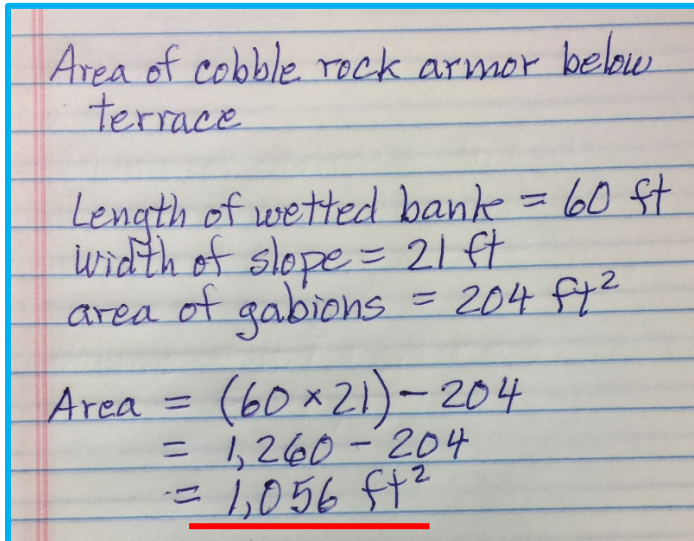 Area of cobble rock armor below
terrace
Length of wetted bank = 60 ft
width of slope = 21 ft
area of gabions = 204 ft²
Area = (60 × 21) - 204
= 1,260 - 204
= 1,056 ft²